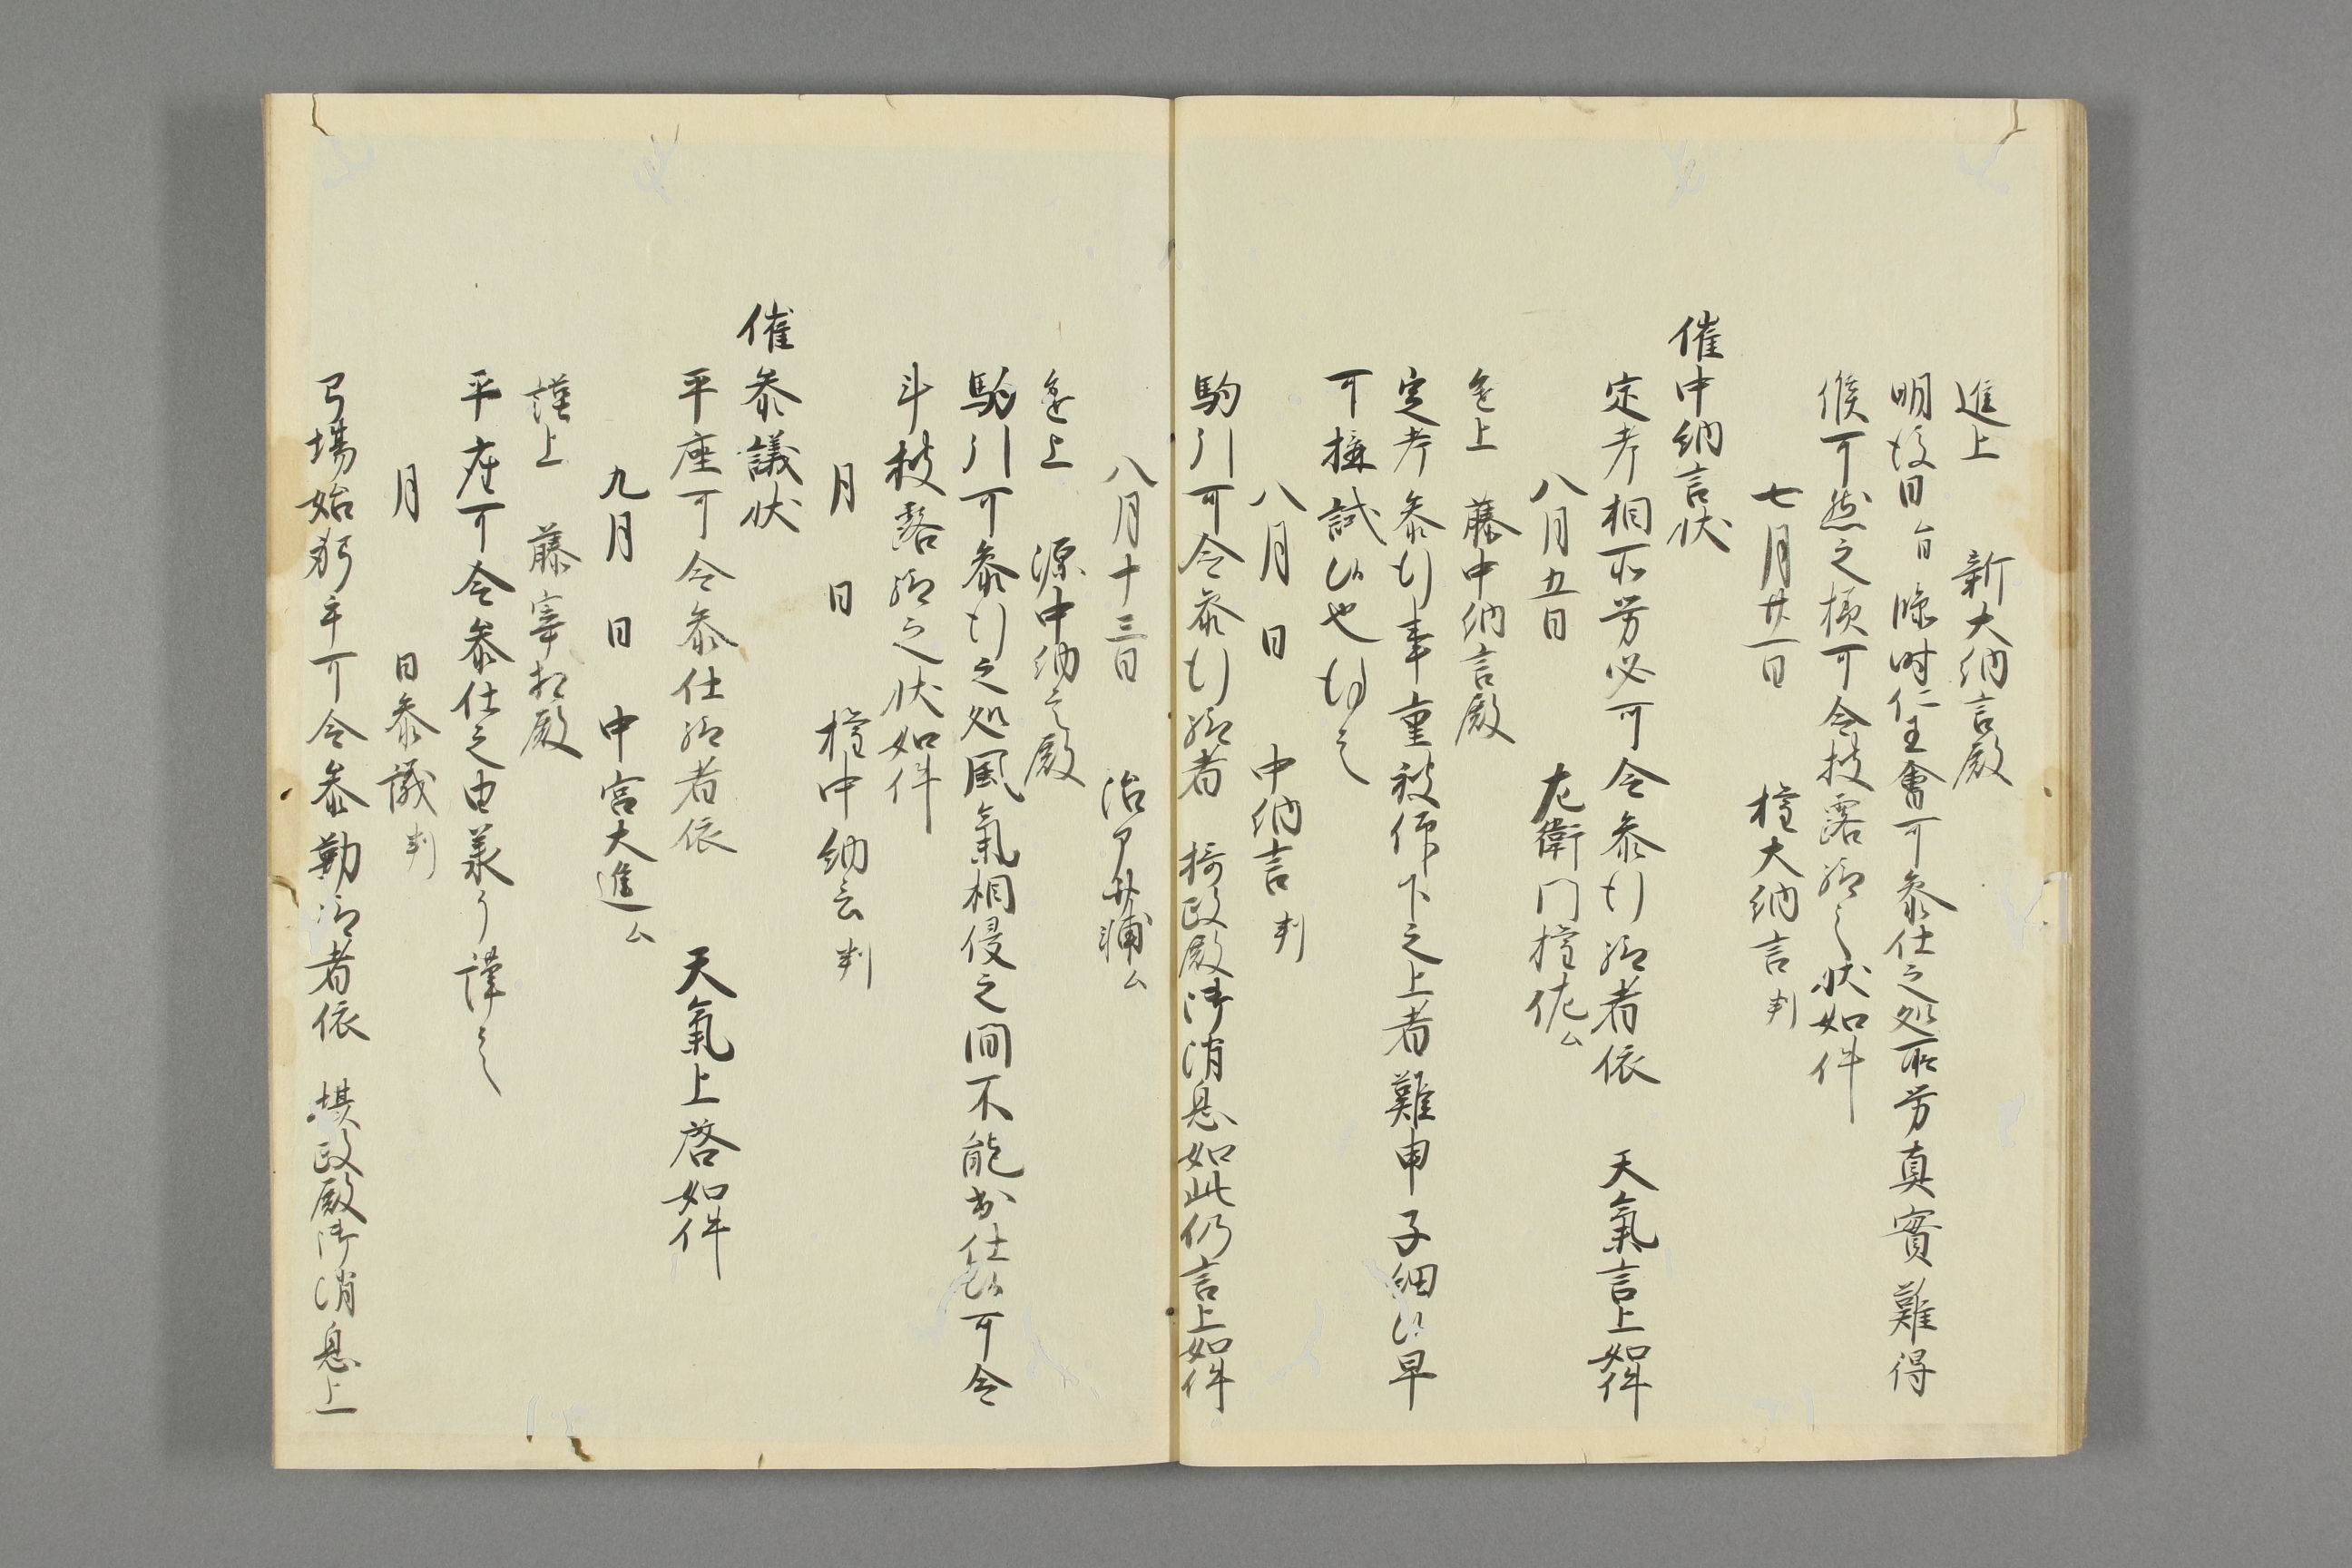 進上　新大納言殿
明後日 臨時仁王會可参仕之処所労真實難得
候可然之様可令披露給之状如件
七月廿一日　権大納言 判
催中納言状
定考相所労必可令参行給者依　天氣言上如件
八月五日　左衛門権佐
進上　藤中納言殿
定考参行事重被仰下之上者難申子細候早
可構試候也
八月　日　中納言 判
駒引可令参行給者　摂政殿御消息如此仍言上如件
八月十三日　治部少輔
進上　源中納言殿
駒引可参行之処風氣相侵之間不能出仕候可令
斗披露給之状如件
月　日　権中納言 判
催参議状
平座可令参仕給者依　天氣上啓如件
九月　日　中宮大進
謹上　藤宰相殿
平座可令参仕之由
月　日 参議 判
弓場始 可令参勤給者依　摂政殿御消息上